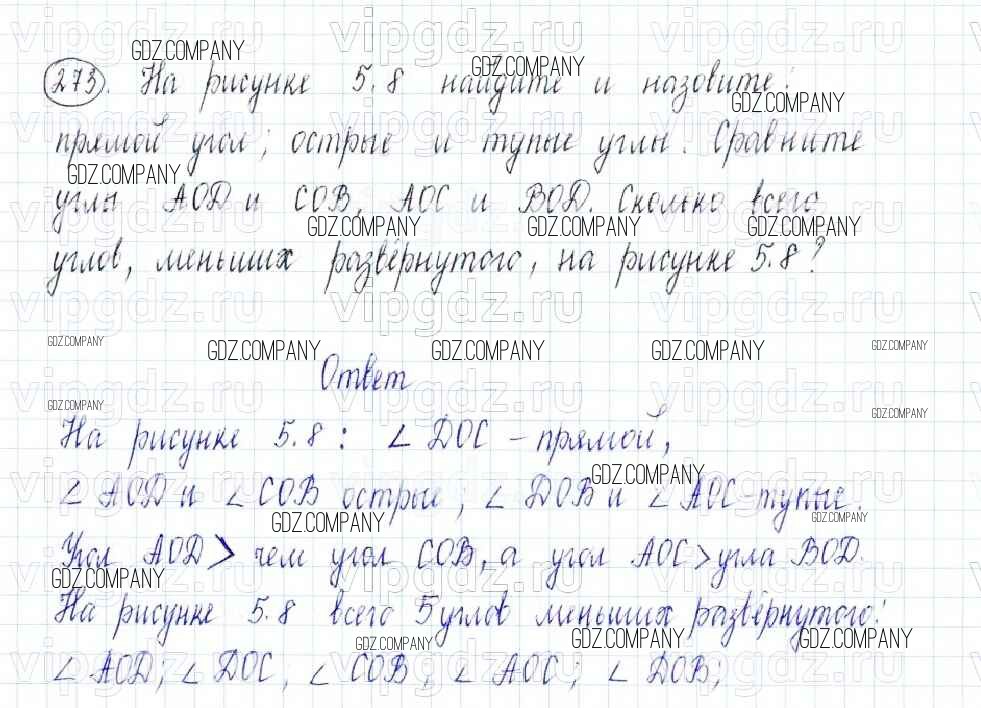 273. На рисунке 5.8 найдите и назовите:
прямой угол; острые и тупые углы. Сравните
углы АОD и СОВ, АОС и ВОD. Сколько всего
углов, меньших развёрнутого, на рисунке 5.8?
Ответ
На рисунке 5.8: ∠ DOC – прямой,
∠ AOD и ∠ COB острые; ∠ DOB и ∠ AOC – тупые.
Угол AOD > чем угол COB, а угол AOC > угла BOD.
На рисунке 5.8 всего 5 углов меньших развёрнутого:
∠ AOD; ∠ DOC, ∠ COB; ∠ AOC; ∠ DOB;